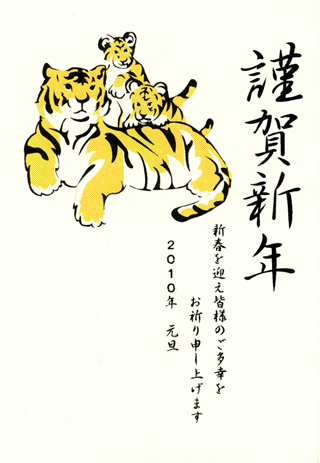 謹賀新年
新春を迎え皆様のご多幸を
お祈り申し上げます
2010年 元旦